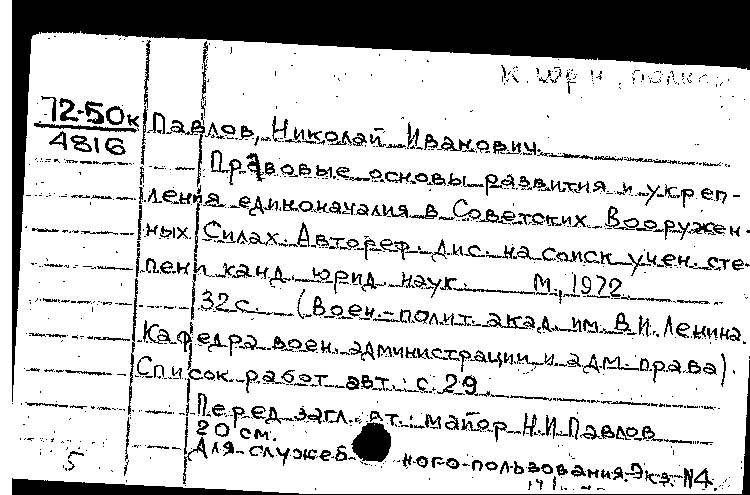 К. юр н, полис
72-50к
4816
Павлов, Николай Иванович.
Правовые основы развития и укреп-
ления единоначалия в Советских Вооружен-
ных Силах. Автореф. дис. на соиск учен. сте-
пени канд. юрид. наук. М., 1972.
32с. (Воен.-полит. акад. им. В.И. Ленина.
Кафедра воен. администрации и адм. права).
Список работ авт.: с. 29.
Перед загл. вт.: майор Н.И. Павлов
20 см.
Для служеб- ного пользования. Экз. №4.
5